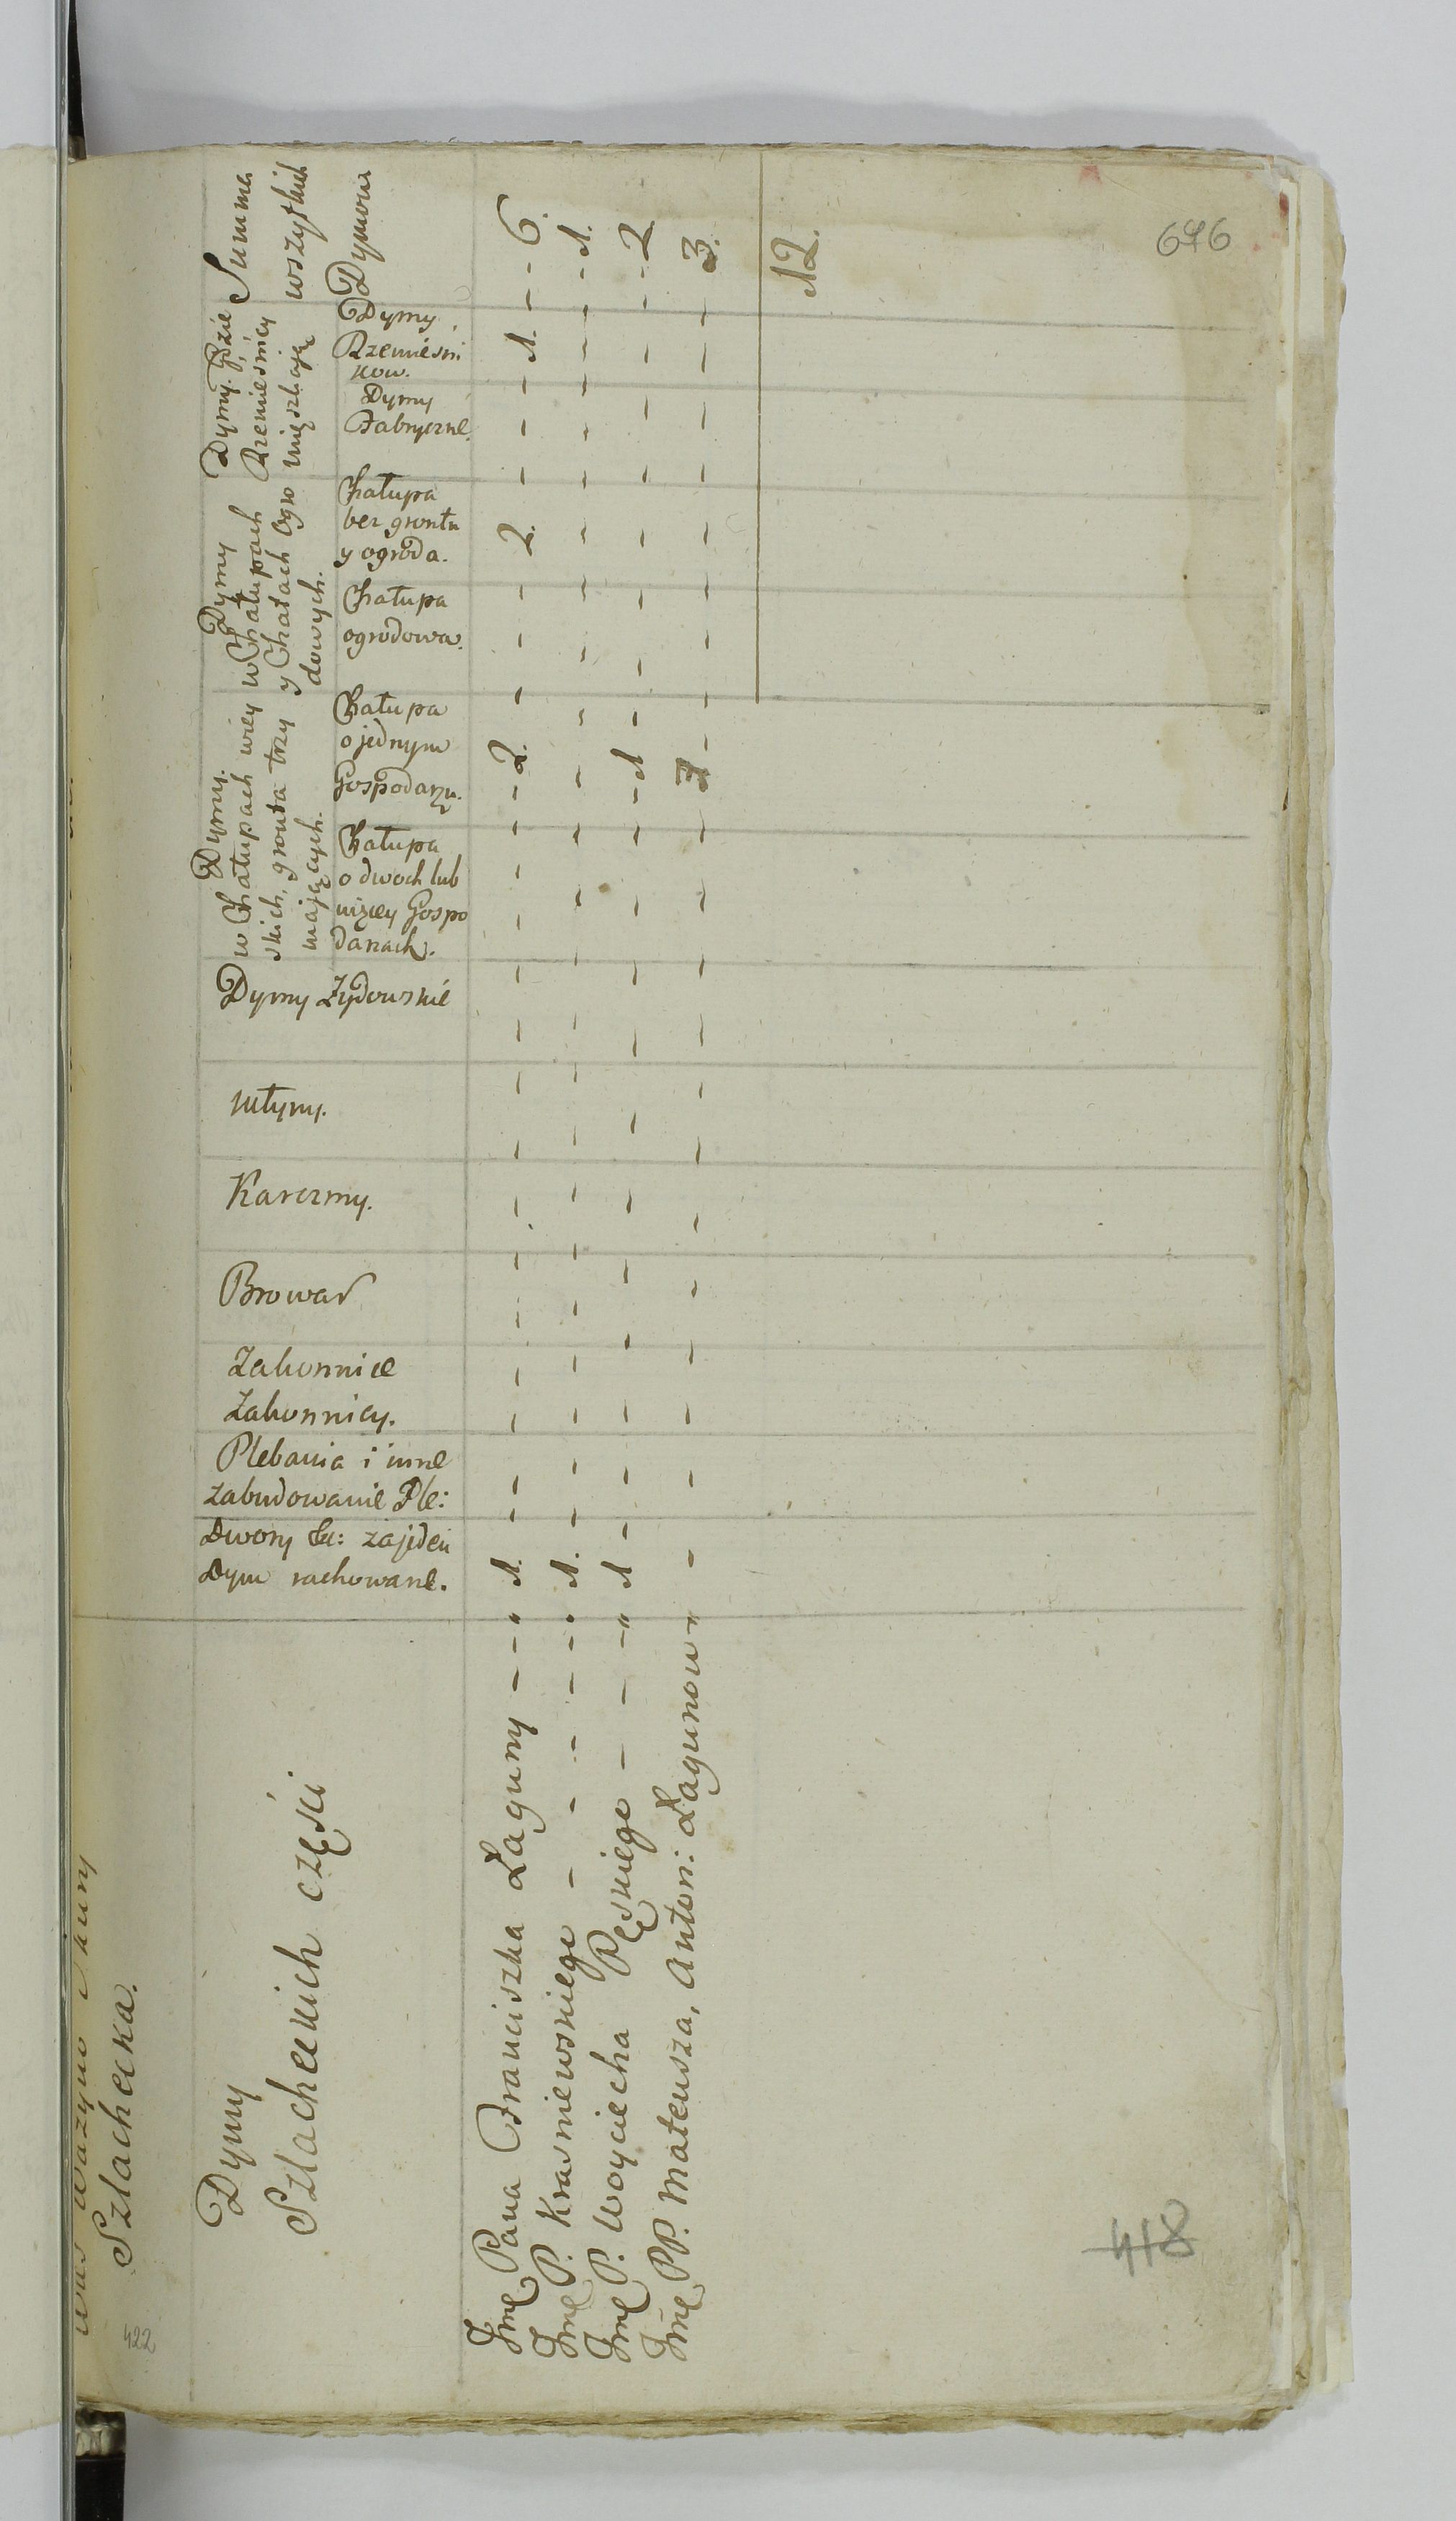 Szlachecka.
Dymy
Szlacheckich części
Dwory &c: za jeden
Dym rachowane.
Plebania i inne
zabudowanie Ple:
Zakonnice
Zakonnicy.
Browar
Karczmy.
Młyny.
Dymy Żydowskie
Dymy.
w Chałupach wiey
skich, grunta trzy
mających.
Chałupa
o dwoch lub
więcey Gospo
darzach.
Chałupa
o jednym
Gospodarzu.
Dymy
w Chałupach
y Chatach Ogro
dowych.
Chałupa
ogrodowa.
Chałupa
bez gruntu
y ogroda.
Dymy. gdzie
Rzemieśnicy
mięszkają
Dymy
Fabryczne.
Dymy
Rzemieśni
kow.
Summa
wszystkich
Dymow
Jmę Pana Franciszka Łaguny - - " 1. - - 2. - 2. - 1. - - 6.
Jmę P. Krasniewskiego - - - - - " 1. - - 1.
Jmę P. Woyciecha Pęskiego - - - " 1 - - 1 - - 2.
Jmę PP. Mateusza, Antoni: Łagunow - " - - 3 - - 3.
12.
676
418
422